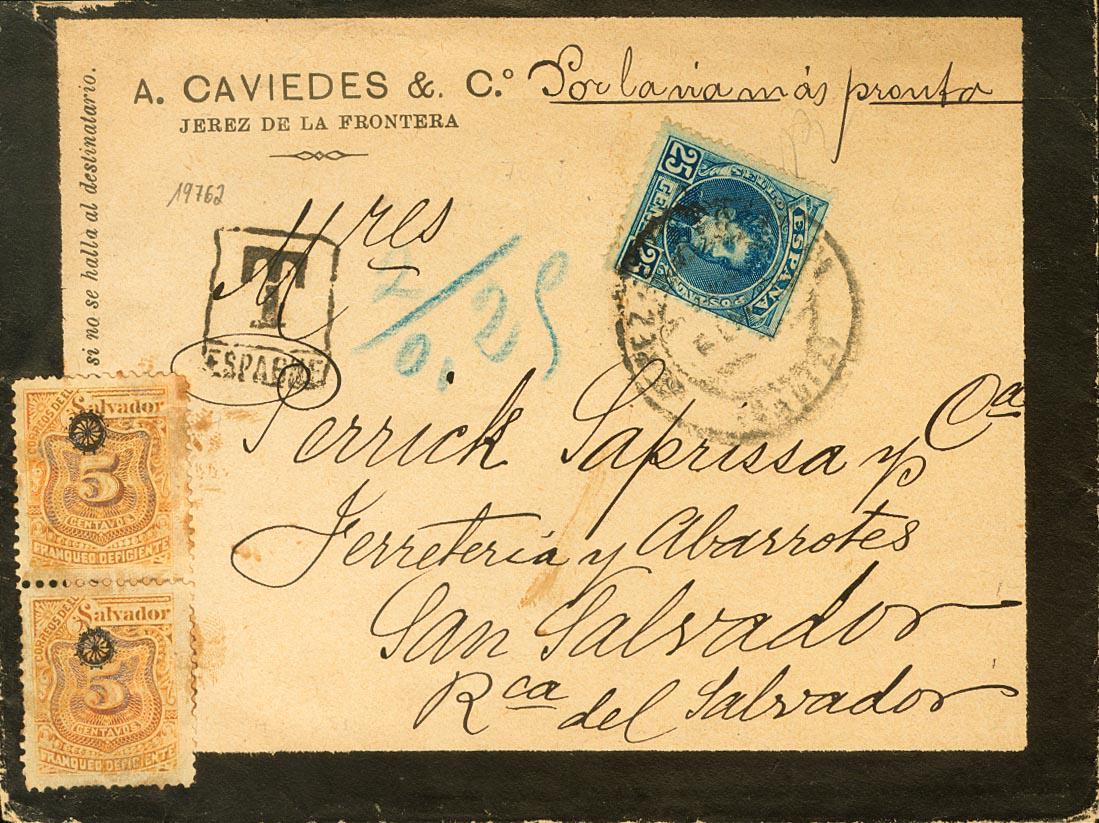 A. CAVIEDES & C.º Por la via más pronto
JEREZ DE LA FRONTERA
si no se halla al destinatario.
19762
25 CENT 25
ESPAÑA
T
ESPAGNE
0,25
Mres
Perrick Saprissa y Ca
Ferreteria y Abarrotes
San Salvador
Rca del Salvador
CORREOS DE EL
Salvador
5
CENTAVOS
FRANQUEO DEFICIENTE
CORREOS DE EL
Salvador
5
CENTAVOS
FRANQUEO DEFICIENTE